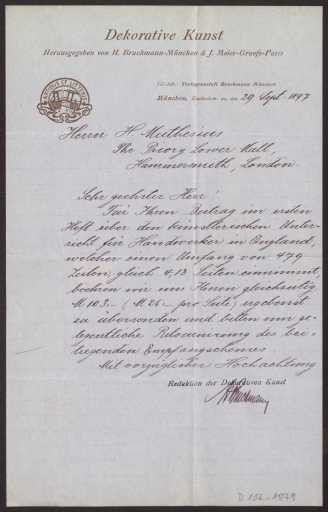 Dekorative Kunst
Herausgegeben von H. Bruckmann-München & J. Meier-Graefe-Paris
Verlagsanstalt Bruckmann München
München, den 29 Sept. 1897
Herrn H Muthesius
The Priory Lower Mall,
Hammersmith, London.
Sehr geehrter Herr!
Für Ihren Beitrag im ersten
Heft über den künstlerischen Unter-
richt für Handwerker in England,
welcher einen Umfang von 479
Zeilen, gleich 4,13 Seiten einnimmt,
beehren wir uns Ihnen gleichzeitig
M 103.– (M 25.– pro Seite) ergebenst
zu übersenden und bitten um ge-
legentliche Retournirung des bei-
liegenden Empfangscheines.
Mit vorzüglicher Hochachtung
Redaktion der Dekorativen Kunst
HBruckmann
D 102-1879